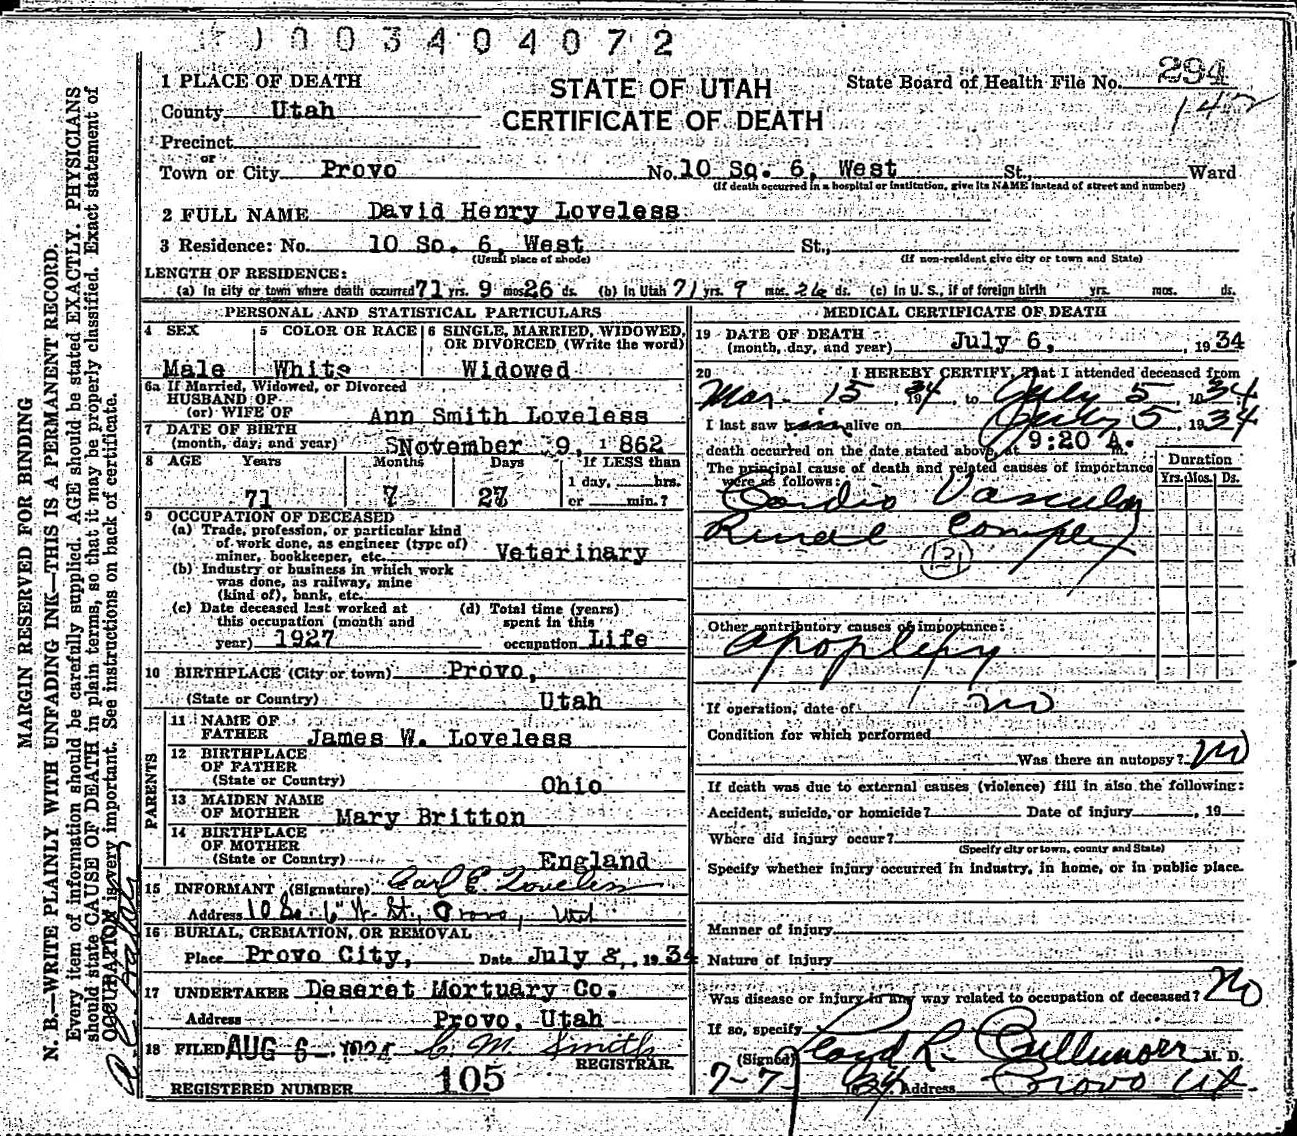 0003404072
1 PLACE OF DEATH
STATE OF UTAH
State Board of Health File No. 294
County Utah
CERTIFICATE OF DEATH
142
Precinct
or
Town or City Provo No. 10 So. 6, West St., Ward
(If death occurred in a hospital or institution, give its NAME instead of street and number)
2 FULL NAME David Henry Loveless
3 Residence: No. 10 So. 6, West St.,
(Usual place of abode) (If non-resident give city or town and State)
LENGTH OF RESIDENCE:
(a) In city or town where death occurred 71 yrs. 9 mos. 26 ds. (b) In Utah 71 yrs. 9 mos. 26 ds. (c) In U. S., if of foreign birth yrs. mos. ds.
PERSONAL AND STATISTICAL PARTICULARS
4 SEX
Male
5 COLOR OR RACE
White
6 SINGLE, MARRIED, WIDOWED,
OR DIVORCED (Write the word)
Widowed
6a If Married, Widowed, or Divorced
HUSBAND OF
(or) WIFE OF Ann Smith Loveless
7 DATE OF BIRTH
(month, day, and year) November 9, 1862
8 AGE Years Months Days If LESS than
1 day, hrs.
71 7 27 or min.?
9 OCCUPATION OF DECEASED
(a) Trade, profession, or particular kind
of work done, as engineer (type of)
miner, bookkeeper, etc. Veterinary
(b) Industry or business in which work
was done, as railway, mine
(kind of), bank, etc.
(c) Date deceased last worked at
this occupation (month and
year) 1927
(d) Total time (years)
spent in this
occupation Life
10 BIRTHPLACE (City or town) Provo,
(State or Country) Utah
PARENTS
11 NAME OF
FATHER James W. Loveless
12 BIRTHPLACE
OF FATHER
(State or Country) Ohio
13 MAIDEN NAME
OF MOTHER Mary Britton
14 BIRTHPLACE
OF MOTHER
(State or Country) England
15 INFORMANT (Signature) Carl E. Loveless
Address 10 So. 6" W. St., Provo, Utah
16 BURIAL, CREMATION, OR REMOVAL
Place Provo City, Date July 8, 1934
17 UNDERTAKER Deseret Mortuary Co.
Address Provo, Utah
18 FILED AUG 6 1934 C. M. Smith
REGISTRAR.
REGISTERED NUMBER 105
MEDICAL CERTIFICATE OF DEATH
19 DATE OF DEATH
(month, day, and year) July 6, 1934
20 I HEREBY CERTIFY, That I attended deceased from
Mar. 15, 1934, to July 5, 1934
I last saw him alive on July 5, 1934
death occurred on the date stated above, at 9:20 A. m.
The principal cause of death and related causes of importance
were as follows:
Duration
Yrs. Mos. Ds.
Cardio Vascular
Renal Complex
131
Other contributory causes of importance:
Apoplexy
If operation, date of no
Condition for which performed
Was there an autopsy? no
If death was due to external causes (violence) fill in also the following:
Accident, suicide, or homicide? Date of injury , 19
Where did injury occur?
(Specify city or town, county and State)
Specify whether injury occurred in industry, in home, or in public place.
Manner of injury
Nature of injury
Was disease or injury in any way related to occupation of deceased? no
If so, specify
(Signed) Lloyd L. Cullimore M. D.
7-7- 34 Address Provo Ut.
MARGIN RESERVED FOR BINDING
N. B.—WRITE PLAINLY WITH UNFADING INK—THIS IS A PERMANENT RECORD.
Every item of information should be carefully supplied. AGE should be stated EXACTLY. PHYSICIANS
should state CAUSE OF DEATH in plain terms, so that it may be properly classified. Exact statement of
OCCUPATION is very important. See instructions on back of certificate.